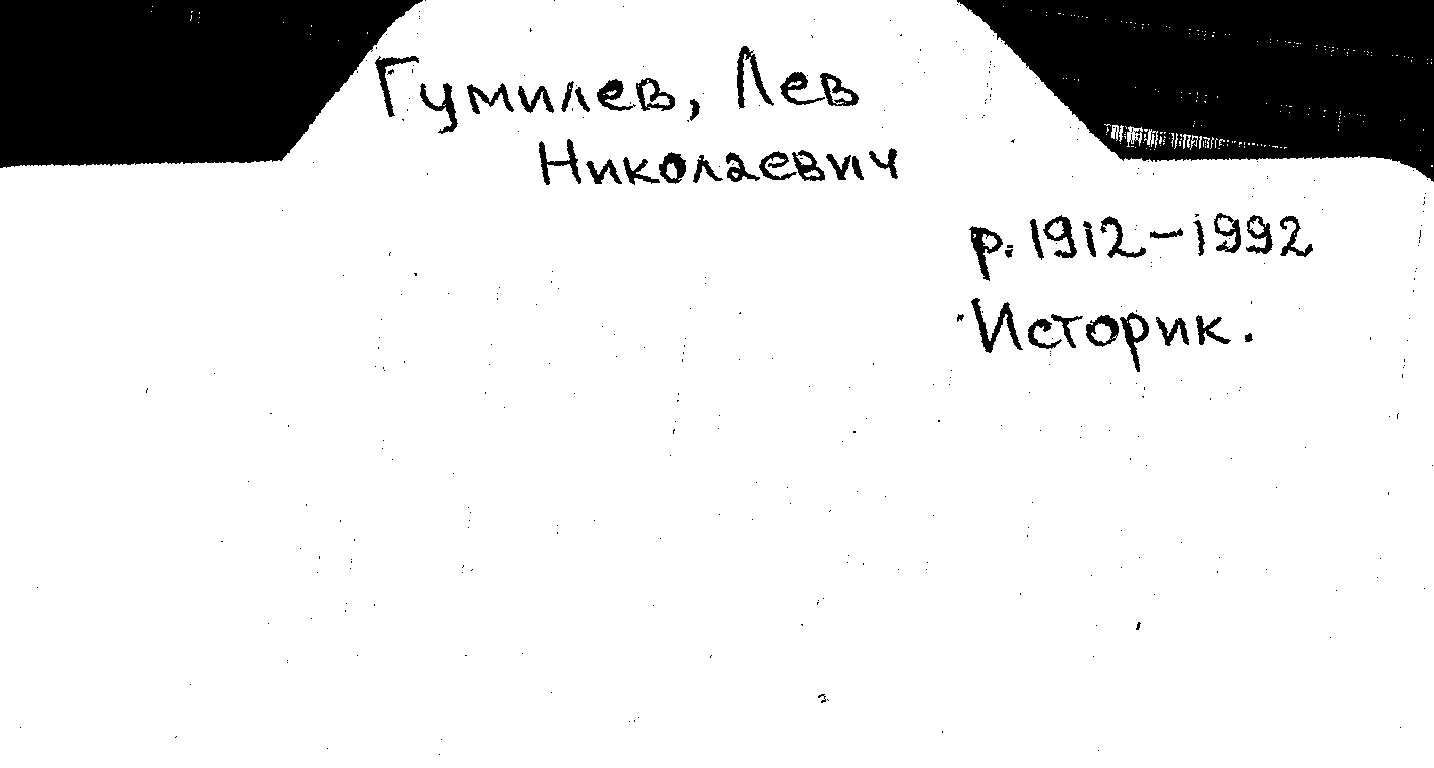 Гумилев, Лев
Николаевич
р. 1912-1992
Историк.